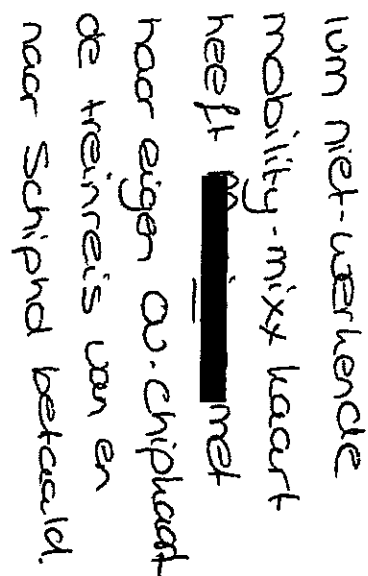 ivm niet-werkende
mobility-mixx kaart
heeft met
haar eigen ov-chipkaart
de treinreis van en
naar Schiphol betaald.